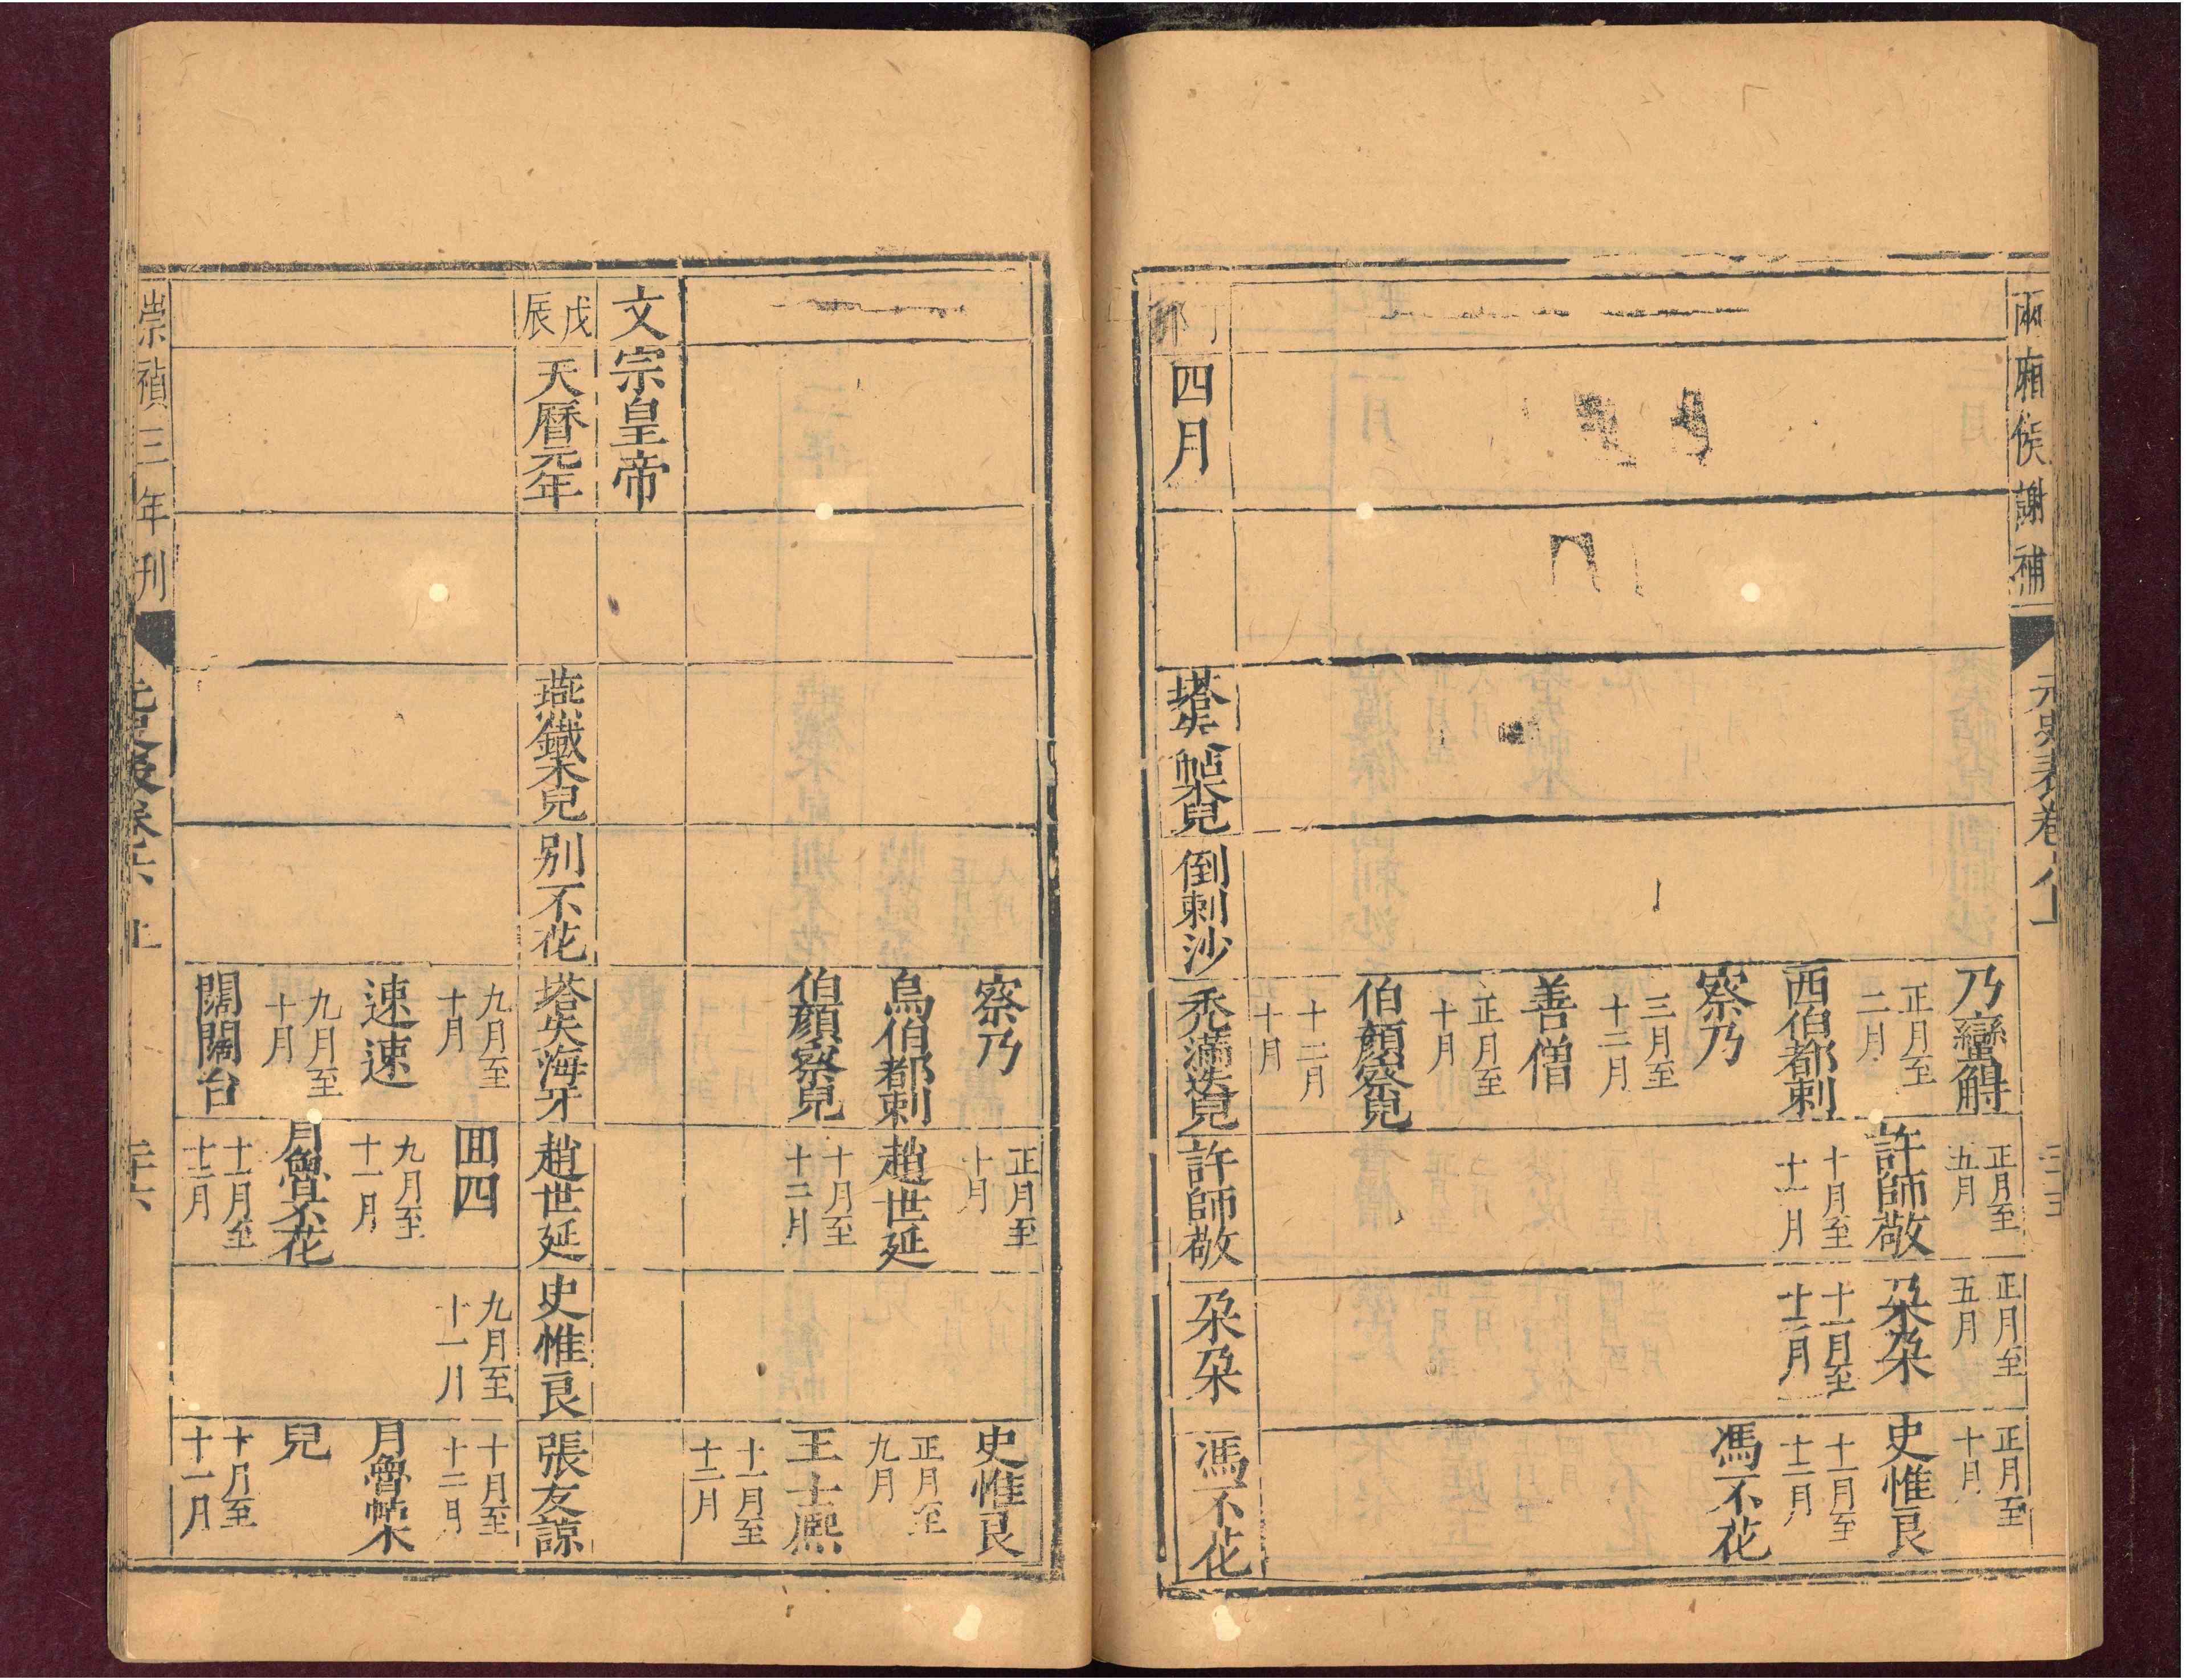 兩廂侯謝補
元史表卷六上
乃蠻䚟
正月至
五月
正月至
五月
正月至
十月
正月至
二月
許師敬
朶朶
史惟良
西伯都剌
十月至
十一月
十一月至
十二月
十一月至
十二月
察乃
馮不花
三月至
十二月
善僧
正月至
十月
伯顏察兒
十二月
十月
四月
塔失帖木兒
倒剌沙
禿滿迭兒
許師敬
朶朶
馮不花
察乃
正月至
十月
史惟良
烏伯都剌
趙世延
正月至
九月
伯顏察兒
十月至
十二月
王士熈
十一月至
十二月
文宗皇帝
戊
辰
天曆元年
燕鐵木兒
別不花
塔失海牙
趙世延
史惟良
張友諒
九月至
十月
回回
九月至
十月至
十二月
速速
九月至
十一月
月魯帖木
九月至
十月
月魯不花
兒
闊闊台
十一月至
十二月
十一月
崇禎三年刊
元史表卷六上